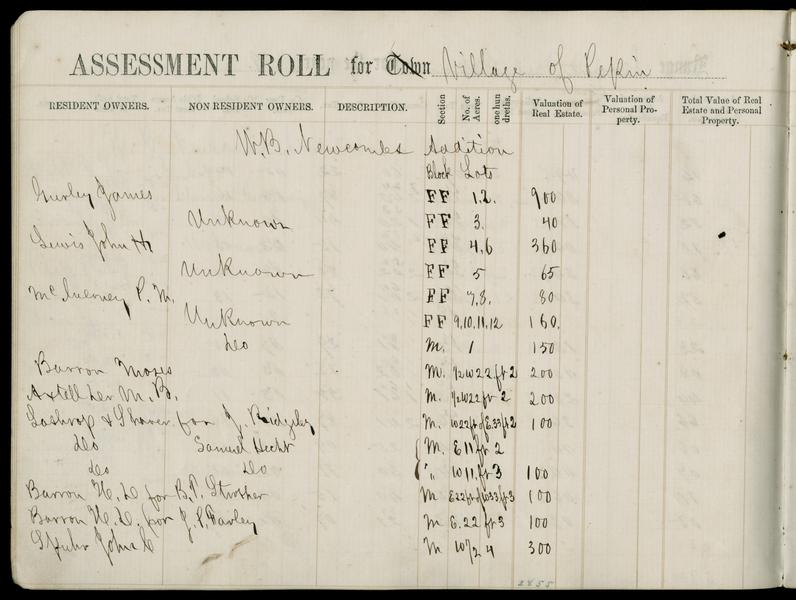 ASSESSMENT ROLL for Town Village of Pepin
RESIDENT OWNERS. NON RESIDENT OWNERS. DESCRIPTION. Section No. of Acres. one hundredths. Valuation of Real Estate. Valuation of Personal Property. Total Value of Real Estate and Personal Property.
W. B. Newcombs Addition
Block Lots
Gurley James FF 1.2. 900
Unknown FF 3. 40
Lewis John H. FF 4,6 360
Unknown FF 5 65
P. M. FF 7,8. 80
Unknown FF 9,10,11,12 160.
do M. 1 150
Barron Moses M. 1/2 W 22 ft 2 200
Axtell M. B. M. 22 ft 2 200
Lathrop & for J. M. 2 100
do Samuel Hecht M. E 11 ft 2
do do " W 11 ft 3 100
Barron H. D for B. F. Strother M E 22 ft of W 33 ft 3 100
Barron H. D. for J. P. Farley M E. 22 ft 3 100
John C M W 1/2 4 300
2855